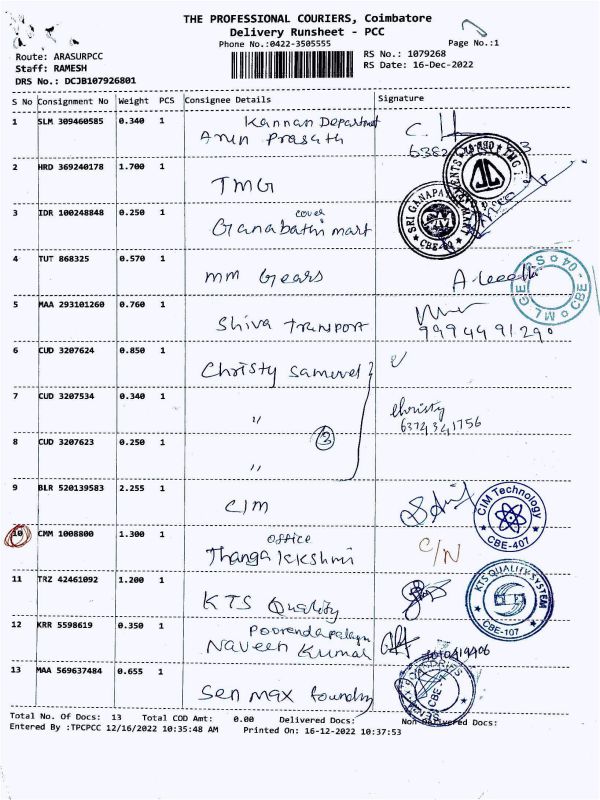 THE PROFESSIONAL COURIERS, Coimbatore
Delivery Runsheet - PCC
Phone No.:0422-3505555
Page No.:1
Route: ARASURPCC
Staff: RAMESH
DRS No.: DCJB107926801
RS No.: 1079268
RS Date: 16-Dec-2022
S No Consignment No Weight PCS Consignee Details Signature
1 SLM 309460585 0.340 1 Kannan Department
Arun Prasath
2 HRD 369240178 1.700 1
TMG
SRI GANAPA
CBE-
3 IDR 100248848 0.250 1 cover
Ganabathi mart
4 TUT 868325 0.570 1
mm Gears
CBE - 04
5 MAA 293101260 0.760 1
Shiva Transport
9994491290
6 CUD 3207624 0.850 1
Christy Samuvel
7 CUD 3207534 0.340 1
" christy
6374341756
8 CUD 3207623 0.250 1 3
"
9 BLR 520139583 2.255 1
CIM
CIM Technology
CBE-407
10 CMM 1008800 1.300 1 office
Thanga lckshmi C/N
11 TRZ 42461092 1.200 1
KTS Quality
KTS QUALITY SYSTEM
CBE-107
12 KRR 5598619 0.350 1
Naveen Kumar
13 MAA 569637484 0.655 1
Sen max foundry
Total No. Of Docs: 13 Total COD Amt: 0.00 Delivered Docs: Non Delivered Docs:
Entered By :TPCPCC 12/16/2022 10:35:48 AM Printed On: 16-12-2022 10:37:53